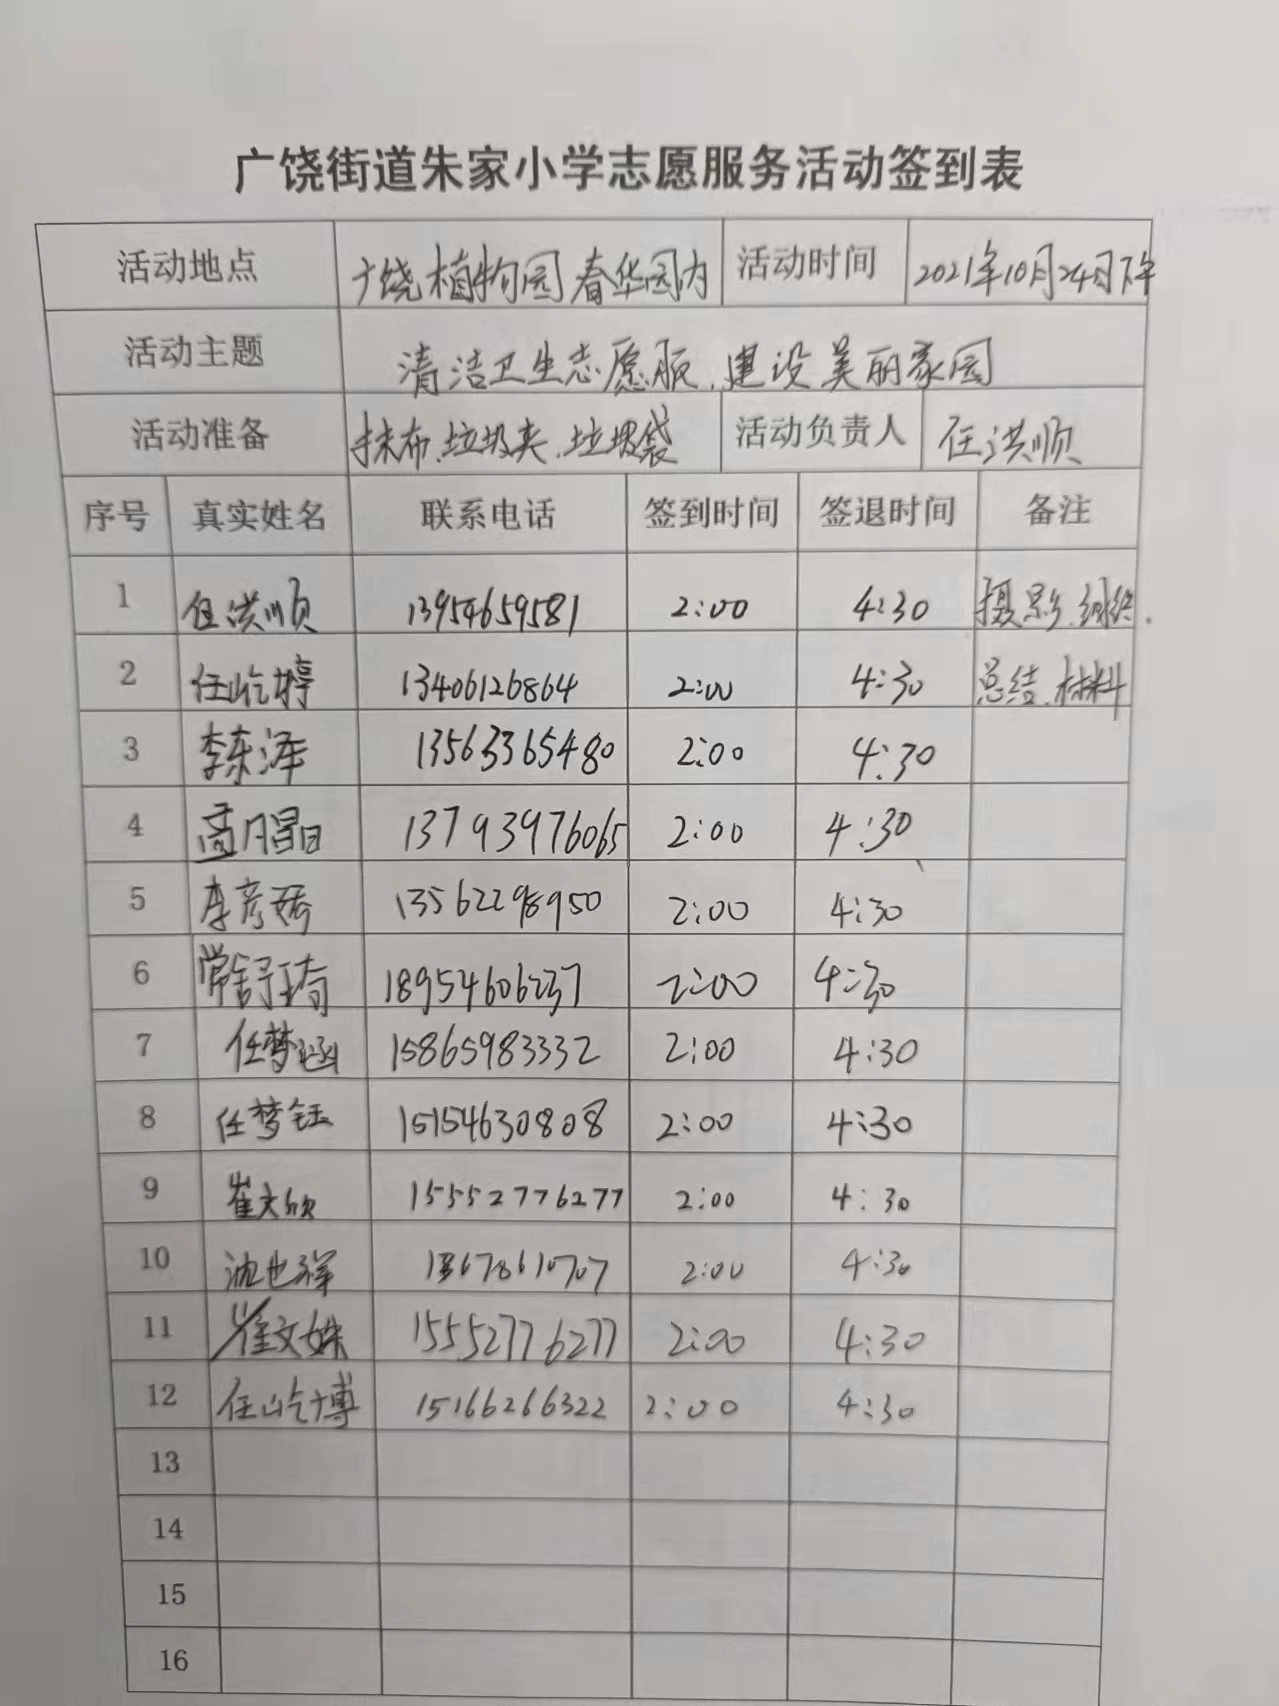 广饶街道朱家小学志愿服务活动签到表
活动地点 广饶植物园春华园内 活动时间 2021年10月24日下午
活动主题 清洁卫生志愿服、建设美丽家园
活动准备 抹布、垃圾夹、垃圾袋 活动负责人 任洪顺
序号 真实姓名 联系电话 签到时间 签退时间 备注
1 任洪顺 13954659581 2:00 4:30 摄影、组织.
2 任屹婷 13406126864 2:00 4:30 总结、材料
3 李东泽 13563365480 2:00 4:30
4 13793976065 2:00 4:30
5 李彦 13562298950 2:00 4:30
6 常舒琦 18954606237 2:00 4:30
7 任梦涵 15865983332 2:00 4:30
8 任梦钰 15154630808 2:00 4:30
9 崔文欣 15552776277 2:00 4:30
10 2:00 4:30
11 崔文姝 15552776277 2:00 4:30
12 任屹博 15166266322 2:00 4:30
13
14
15
16